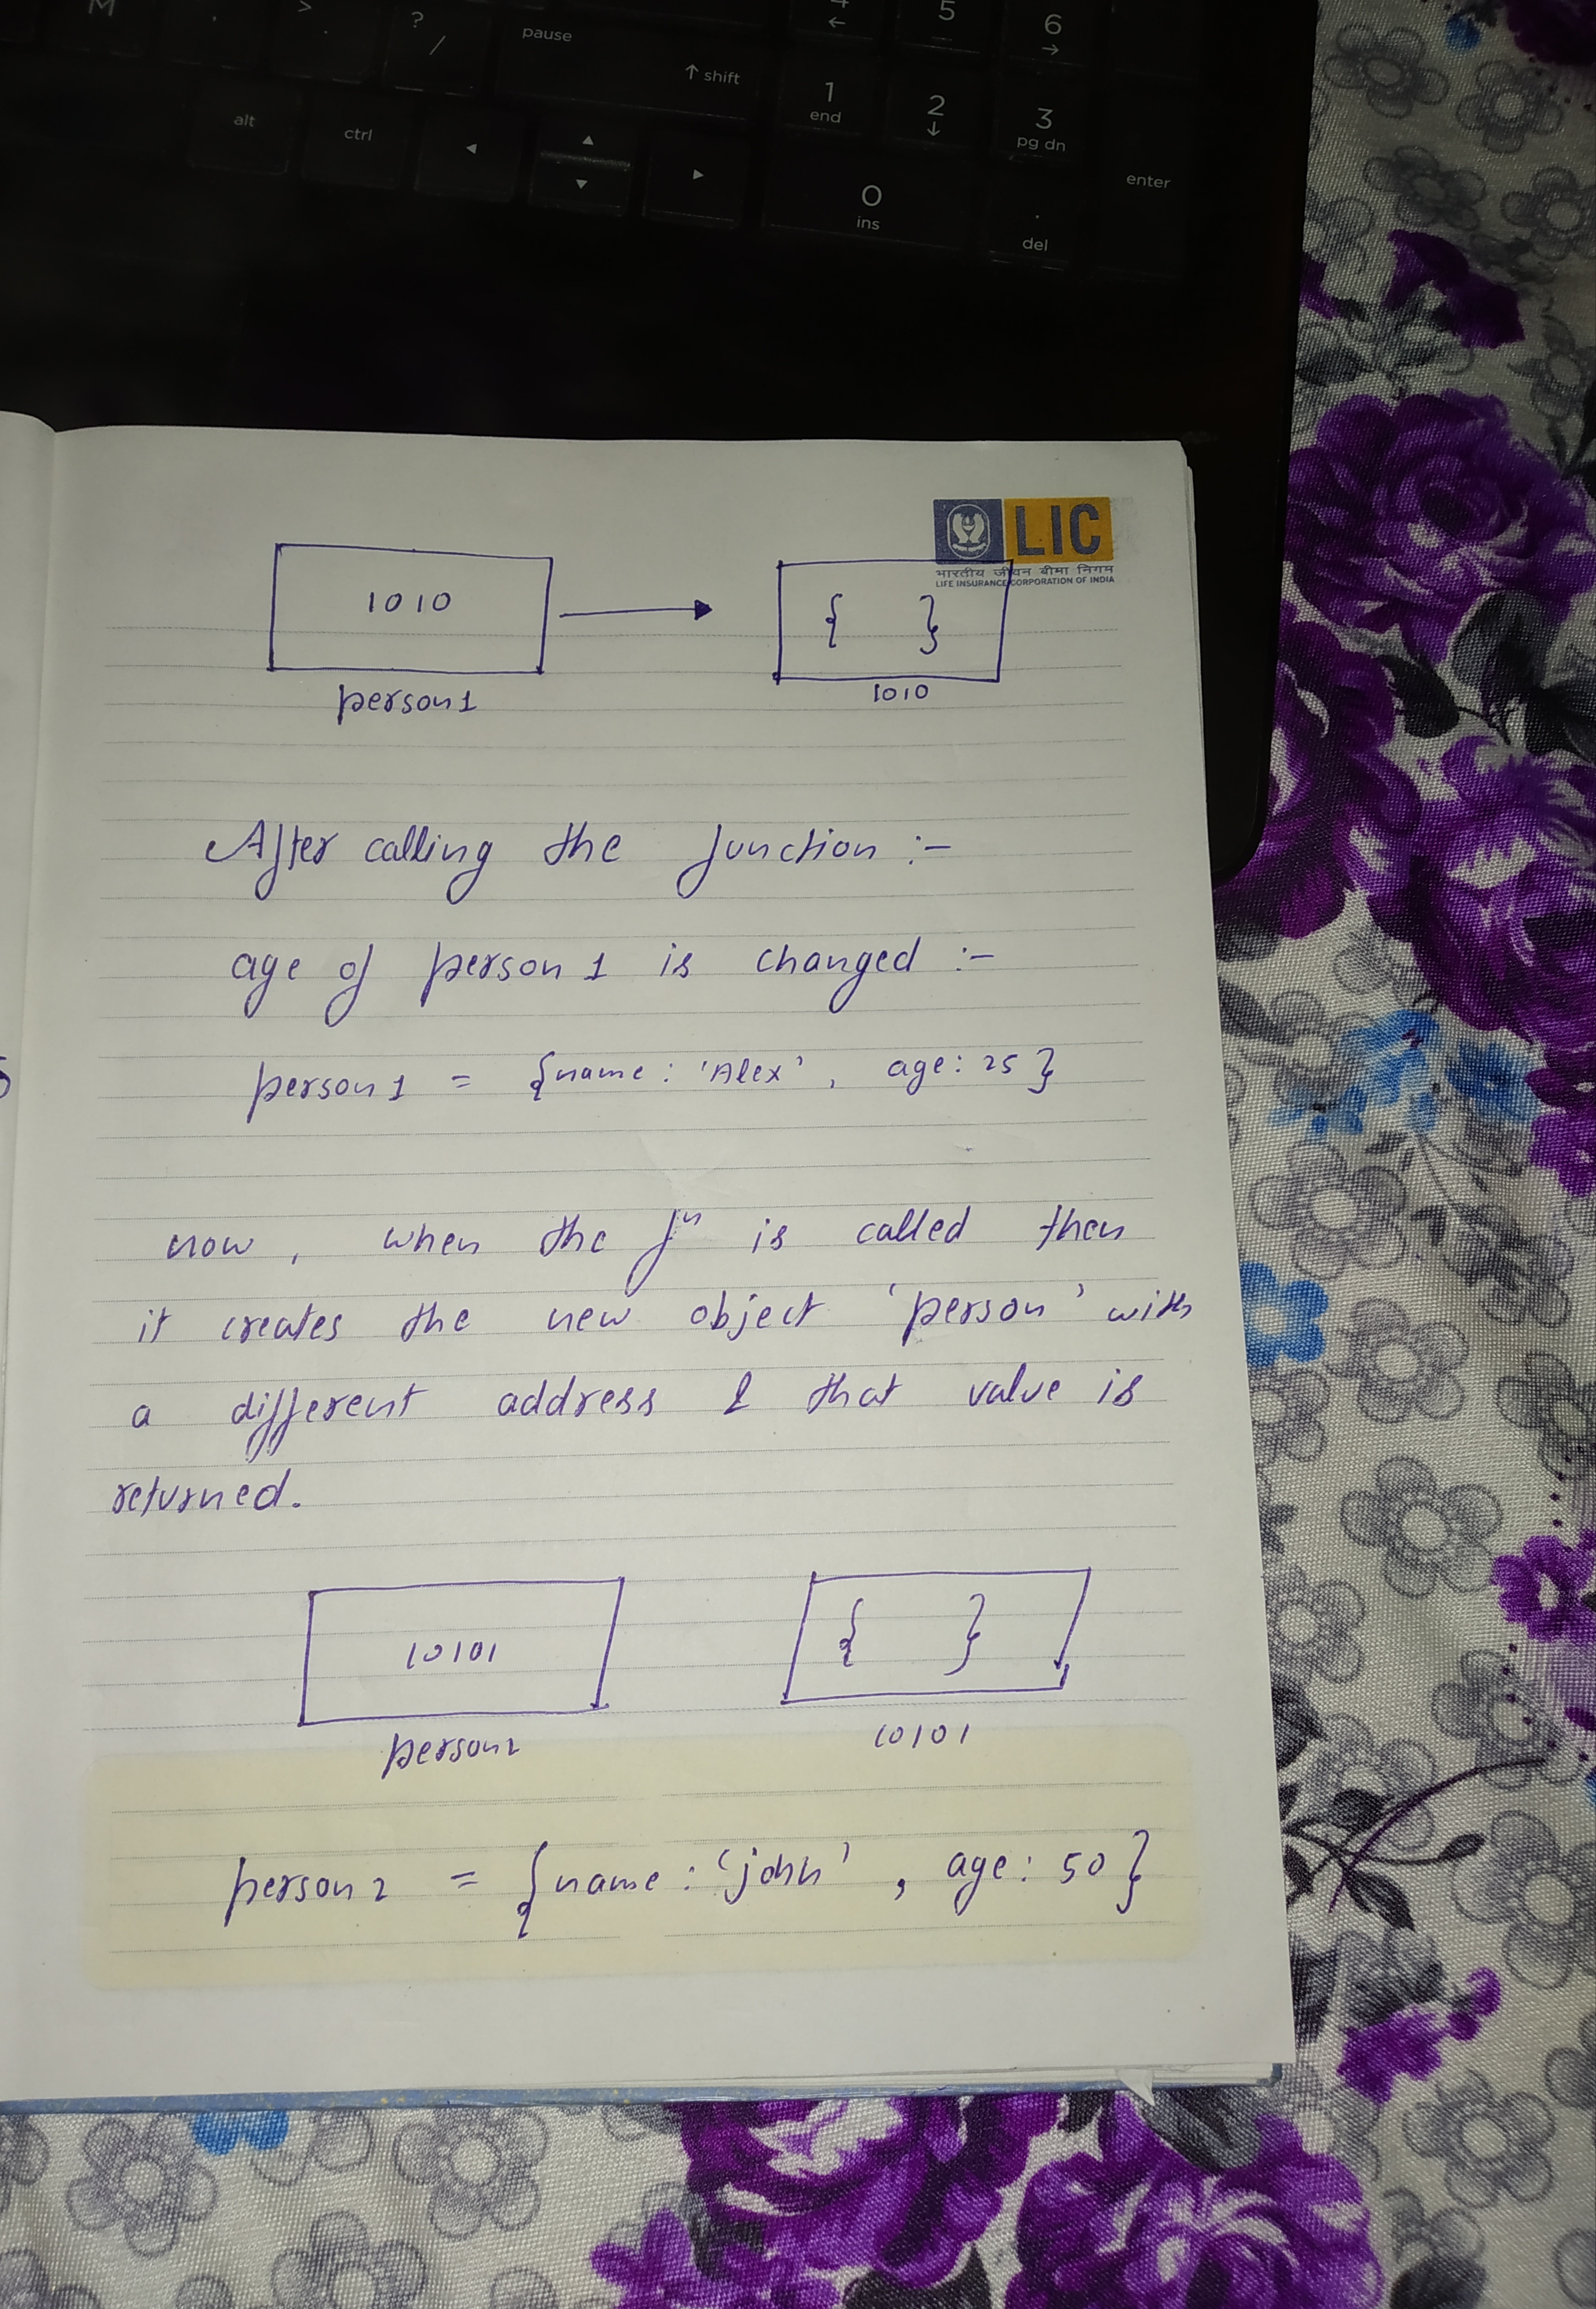 M
>
.
?
/
pause
↑ shift
4
←
5
6
→
alt
ctrl
◀
▲
▼
▶
1
end
2
↓
3
pg dn
0
ins
.
del
enter
LIC
भारतीय जीवन बीमा निगम
LIFE INSURANCE CORPORATION OF INDIA
1010
{ }
person1
1010
After calling the function :-
age of person 1 is changed :-
person1 = {name : 'Alex' , age: 25 }
now , when the fⁿ is called then
it creates the new object 'person' with
a different address & that value is
returned.
10101
{ }
person2
10101
person2 = {name : 'john' , age: 50 }